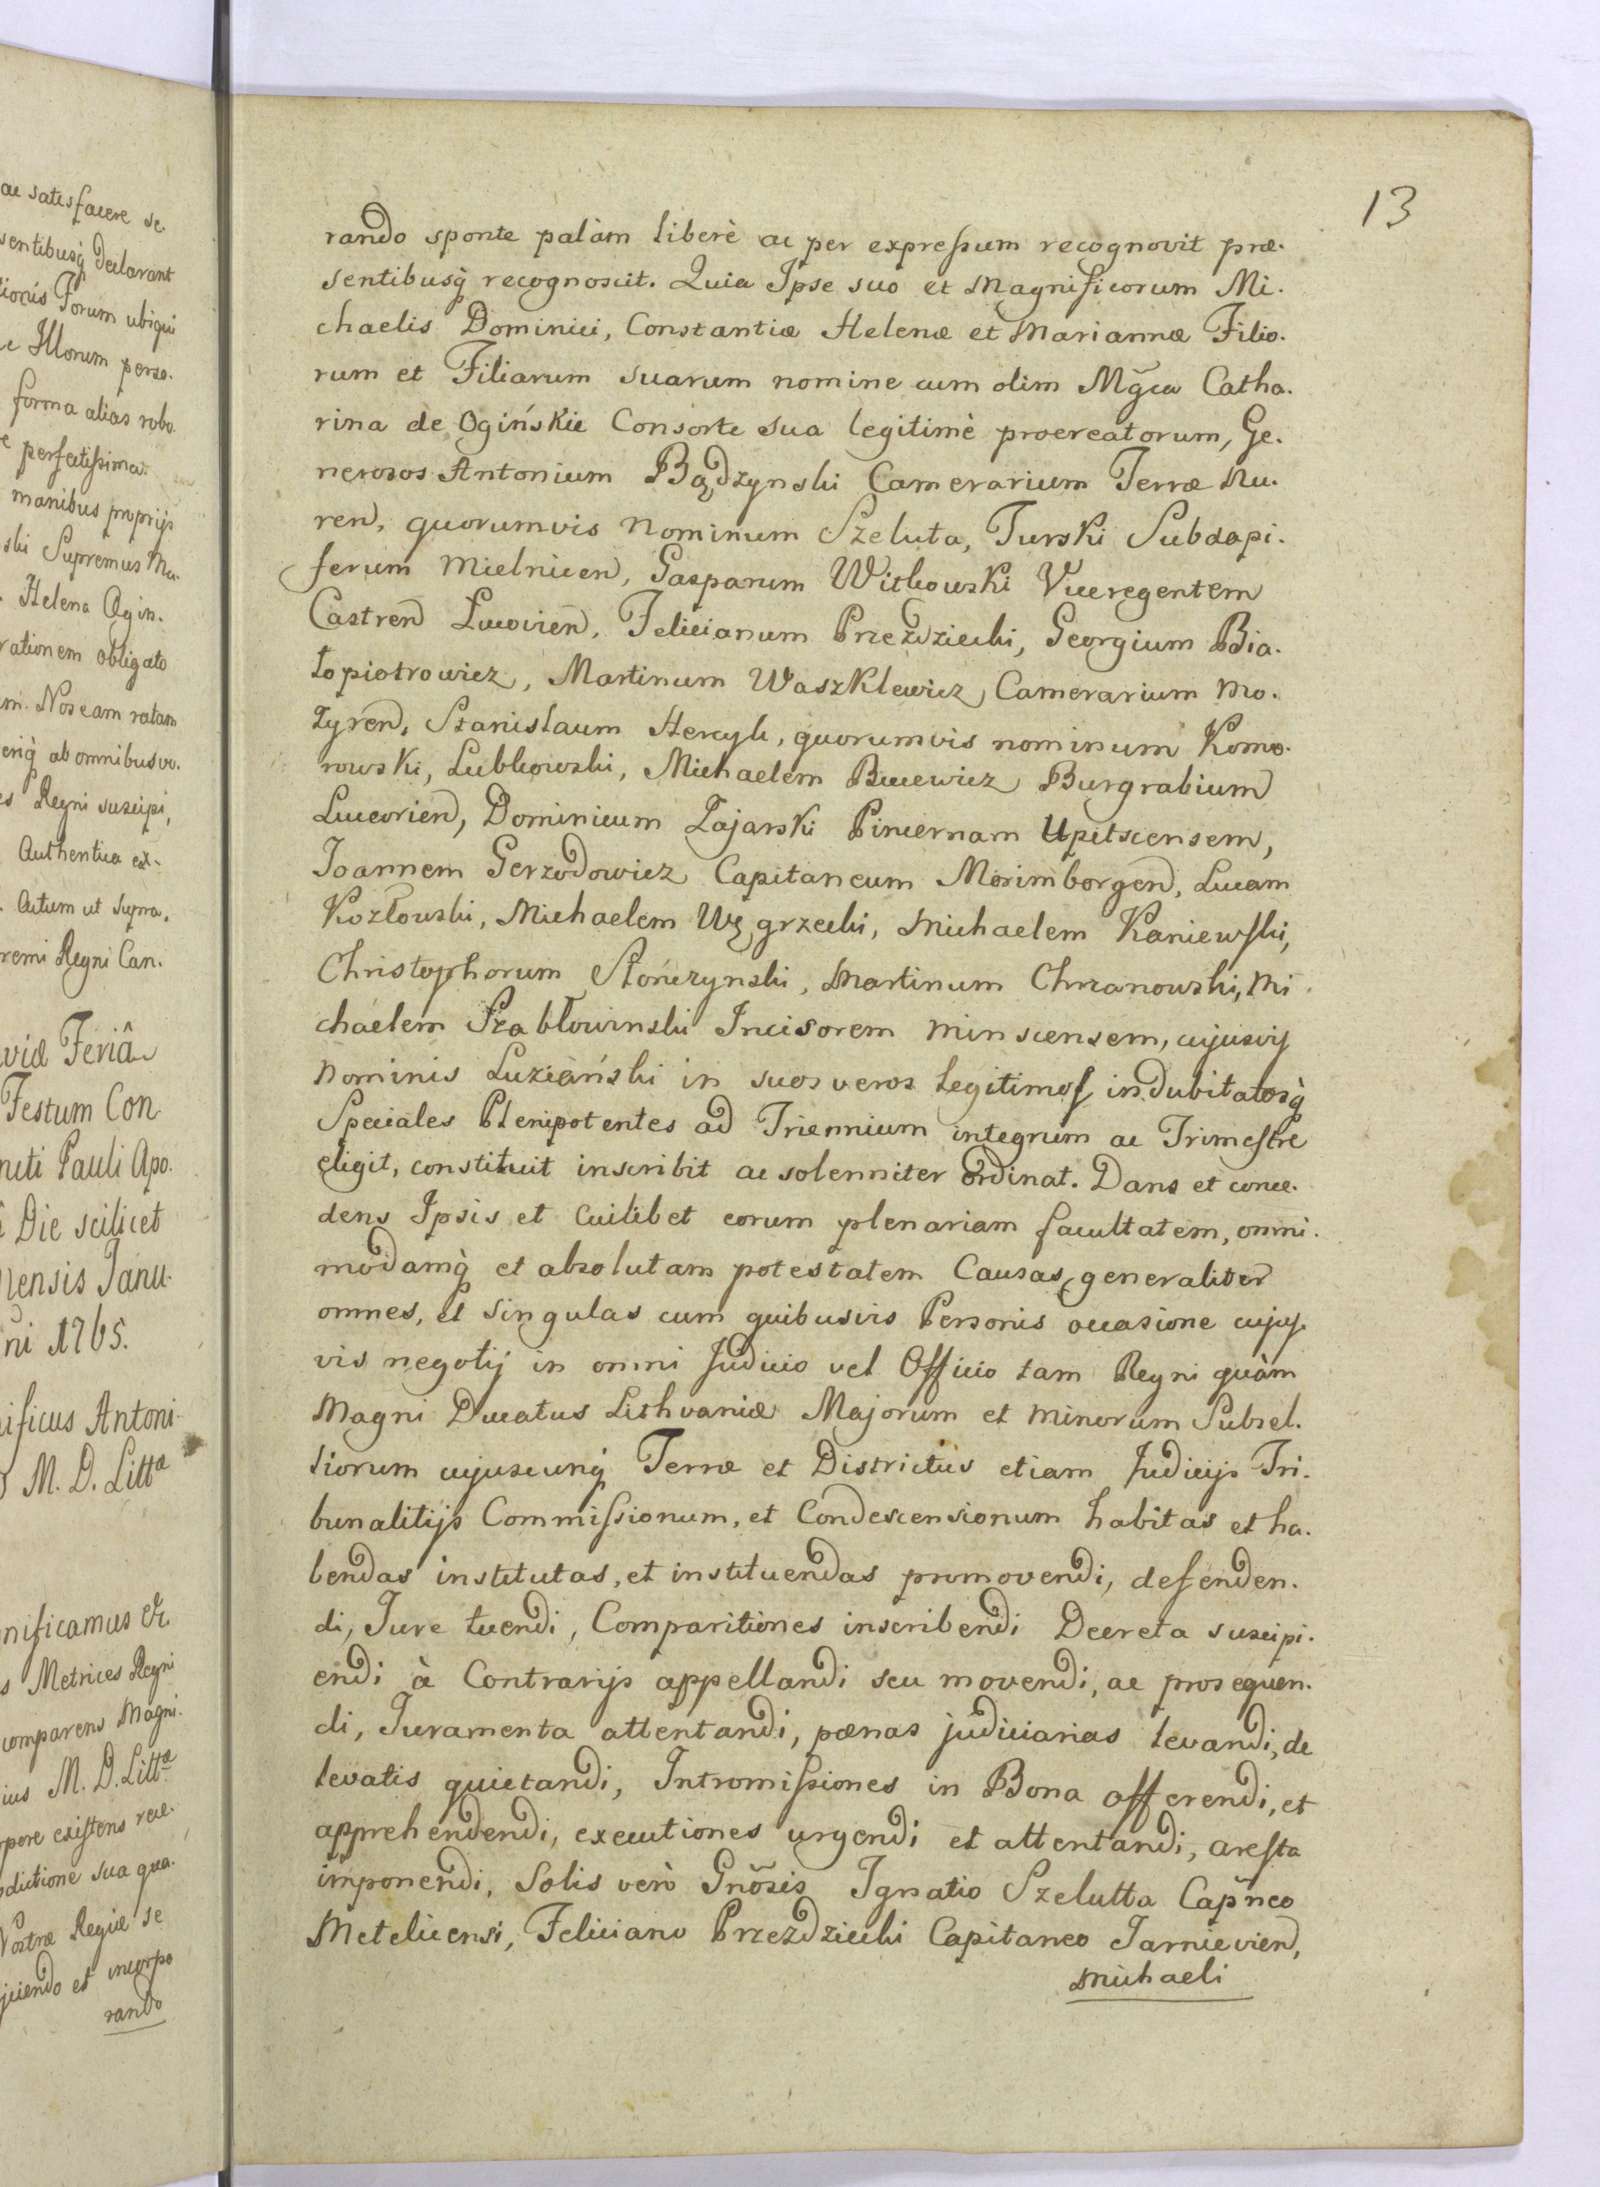 ac satisfacere se
sentibusq̀ declarant
tionis Forum ubiqui
Illorum perso.
forma alias robo
perfectissima.
manibus proprijs
ski Supremus Ma.
Helena Ogin.
rationem obligato
m. Nos eam ratam
erig̀ ab omnibus vo.
es Regni suscipi,
Authentica ex.
Actum ut supra.
remi Regni Can.
viæ Feriâ
Festum Con
ncti Pauli Apo.
Die scilicet
ensis Janu.
ni 1765.
ificus Antoni
M. D. Littæ
nificamus &c
s Metrices Regni
comparens Magni.
ius M. D. Littæ
rpore existens rece.
dictione sua qua.
Nostræ Regiæ se
ijciendo et incorpo
rando
13
rando sponte palàm liberè ac per expressum recognovit præ.
sentibusq̀ recognoscit. Quia Ipse suo et Magnificorum Mi.
chaelis Dominici, Constantiæ Helenæ et Mariannæ Filio.
rum et Filiarum suarum nomine cum olim Mg̃ca Catha.
rina de Ogińskie Consorte sua legitimè procreatorum, Ge.
nerosos Antonium Bądzynski Camerarium Terræ Nu.
ren, quorumvis Nominum Szeluta, Turski Subdapi.
ferum Mielnicen, Gasparum Witkowski Viceregentem
Castren Luceorien, Felicianum Przezdziecki, Georgium Bia.
łopiotrowicz, Martinum Waszklewicz Camerarium Mo.
zyren, Stanislaum Hercyk, quorumvis nominum Komo.
rowski, Lubkowski, Michaelem Bucewicz Burgrabium
Luceorien, Dominicum Zajarski Pincernam Upitscensem,
Joannem Gerzodowicz Capitaneum Morimborgen, Lucam
Kozłowski, Michaelem Węgrzecki, Michaelem Kaniewski,
Christophorum Słończynski, Martinum Chrzanowski, Mi.
chaelem Szabłowinski Incisorem Minscensem, cujusvis
Nominis Luziański in suos veros legitimos indubitatosq̀
Speciales Plenipotentes ad Triennium integrum ac Trimestre
eligit, constituit inscribit ac solenniter ordinat. Dans et conce.
dens Ipsis et cuilibet eorum plenariam facultatem, omni.
modamq̀ et absolutam potestatem Causas generaliter
omnes, et singulas cum quibusvis Personis occasione cujus
vis negotij in omni Judicio vel Officio tam Regni quàm
Magni Ducatus Lithvaniæ Majorum et Minorum Subsel.
liorum cujuscunq̀ Terræ et Districtûs etiam Judicijs Tri.
bunalitijs Commissionum, et Condescensionum habitas et ha.
bendas institutas, et instituendas promovendi, defenden.
di, Jure tuendi, Comparitiones inscribendi Decreta suscipi.
endi à Contrarijs appellandi seu movendi, ac prosequen.
di, Juramenta attentandi, pœnas judiciarias levandi, de
levatis quietandi, Intromissiones in Bona offerendi, et
apprehendendi, executiones urgendi et attentandi, aresta
imponendi, Solis verò Gnõsis Ignatio Szelutta Cap̃neo
Metelicensi, Feliciano Przezdziecki Capitaneo Jarniewien,
Michaeli